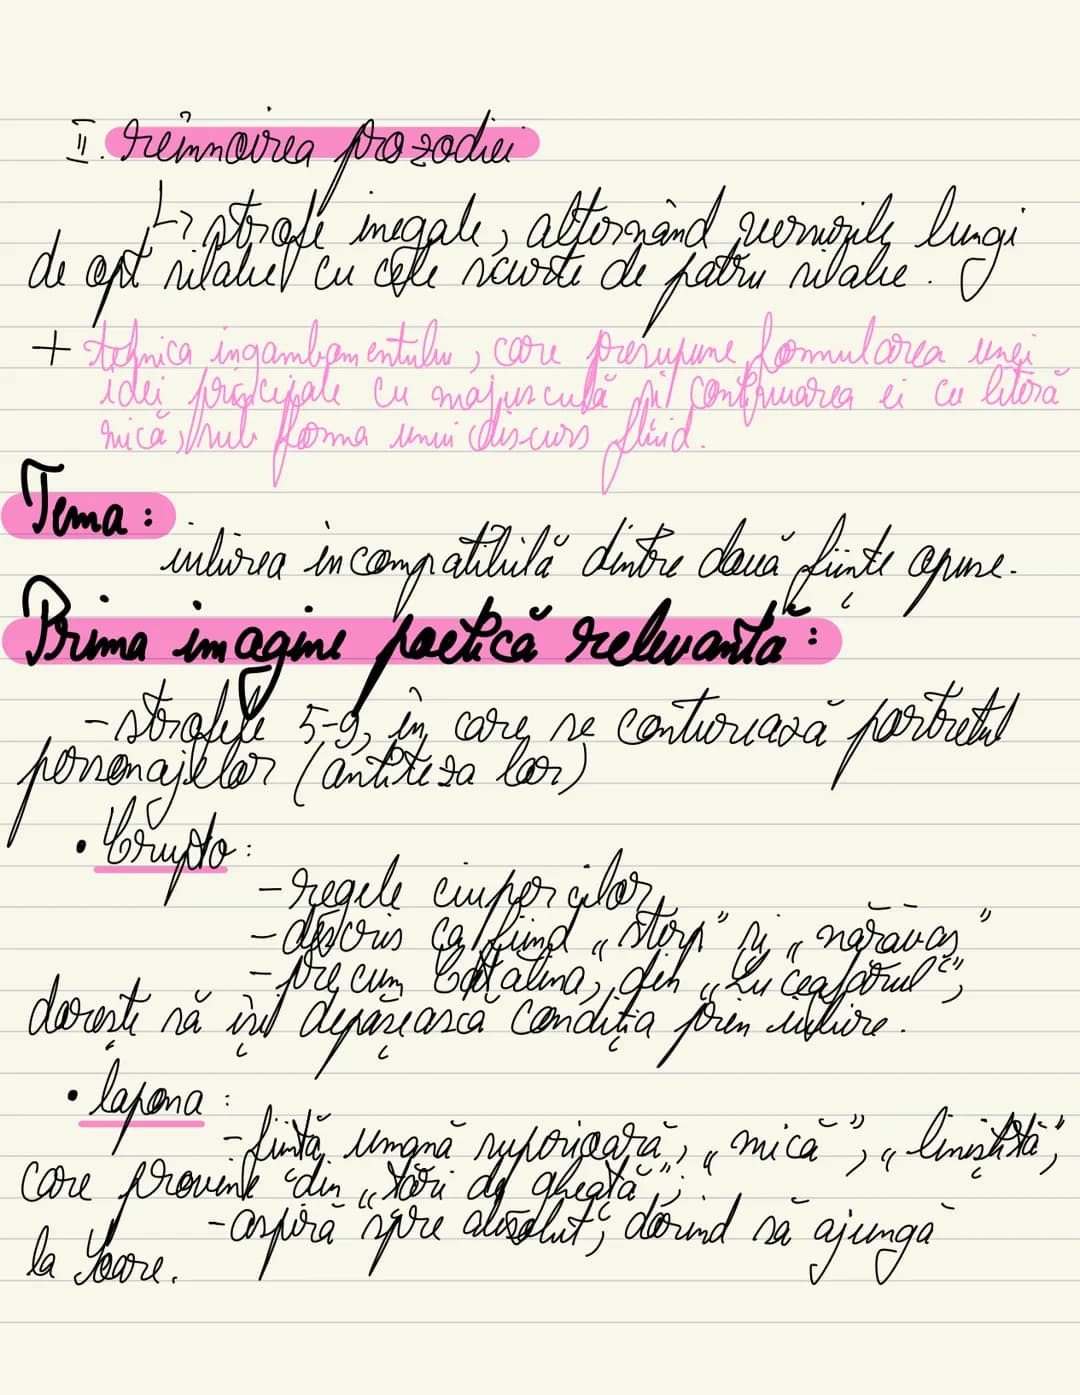 II. reînnoirea prozodiei
↳ strofe inegale, alternând versurile lungi
de opt silabe cu cele scurte de patru silabe.
+ tehnica ingambamentului, care presupune formularea unei
idei principale cu majusculă și continuarea ei cu literă
mică, sub forma unui discurs fluid.
Tema:
iubirea incompatibilă dintre două ființe opuse.
Prima imagine poetică relevantă:
- strofele 5-9, în care se conturează portretul
personajelor (antiteza lor)
• Crypto:
- regele ciupercilor
- descris ca fiind „sterp" și „nărăvaș"
- precum Cătălina, din „Luceafărul",
dorește să își depășească condiția prin iubire.
• lapona:
- ființă umană superioară, „mică", „liniștită",
care provine din „țări de gheață";
- aspiră spre absolut, dorind să ajungă
la Soare.